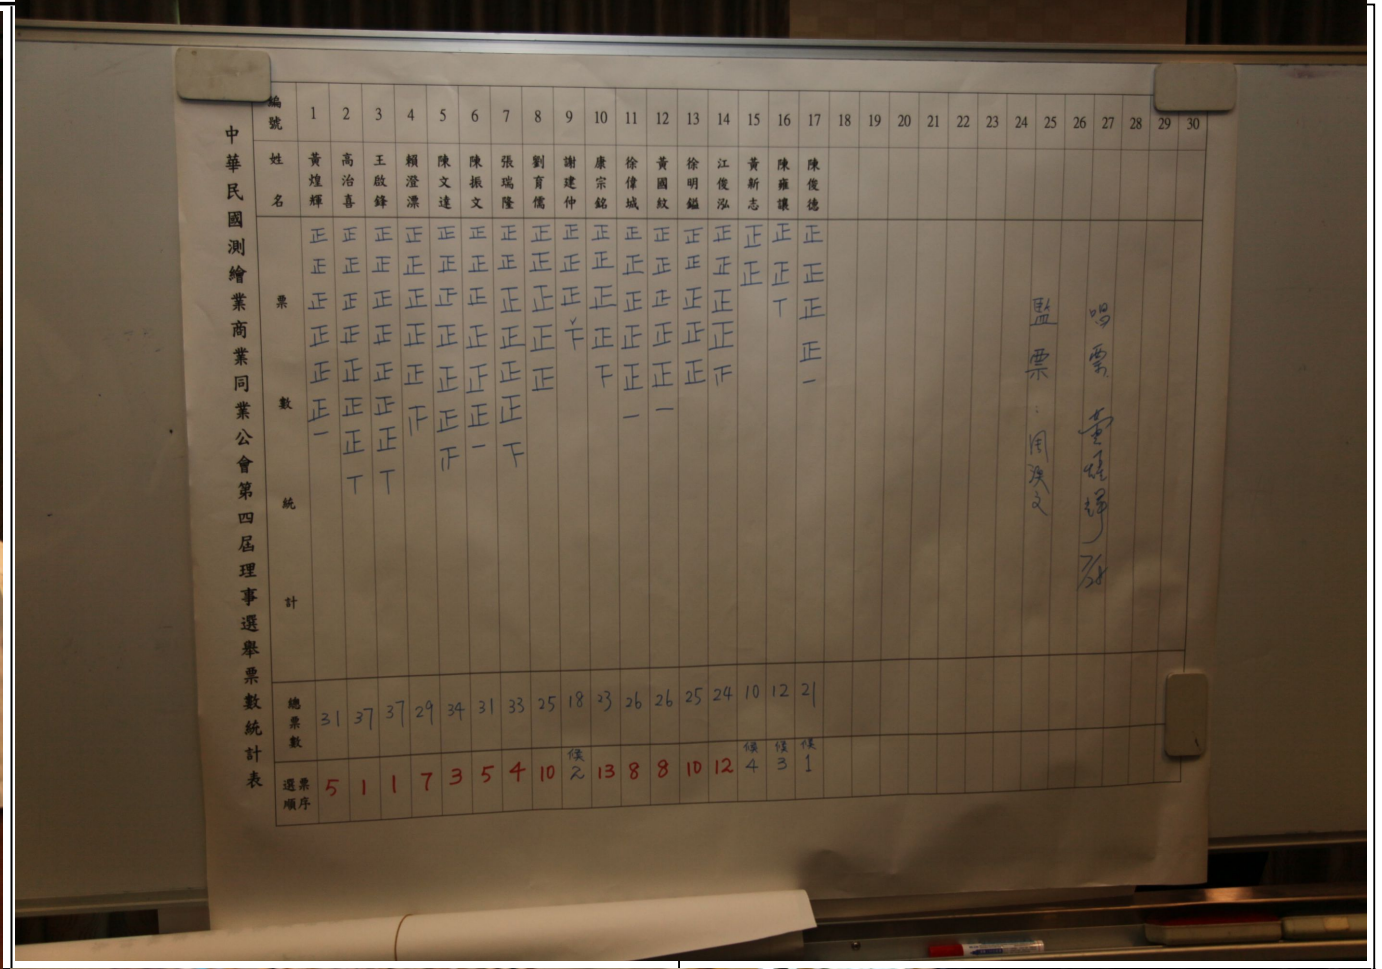 中華民國測繪業商業同業公會第四屆理事選舉票數統計表
編號 1 2 3 4 5 6 7 8 9 10 11 12 13 14 15 16 17 18 19 20 21 22 23 24 25 26 27 28 29 30
姓名 黃煌輝 高治喜 王啟鋒 賴澄漂 陳文達 陳振文 張瑞隆 劉育儒 謝建仲 康宗銘 徐偉城 黃國紋 徐明鎰 江俊泓 黃新志 陳雍讓 陳俊德
票數統計
正 正 正 正 正 正 正 正 正 正 正 正 正 正 正 正 正
正 正 正 正 正 正 正 正 正 正 正 正 正 正 正 正 正
正 正 正 正 正 正 正 正 正 正 正 正 正 正 丅 正
正 正 正 正 正 正 正 正 下 正 正 正 正 正 正
正 正 正 正 正 正 正 正 下 正 正 正 一
正 正 正 正 正 正 一 一
一 正 正 一 下
丅 丅
唱票 黃煌輝 7/28
監票：周
總票數 31 37 37 29 34 31 33 25 18 23 26 26 25 24 10 12 21
選票順序 5 1 1 7 3 5 4 10 候2 13 8 8 10 12 候4 候3 候1